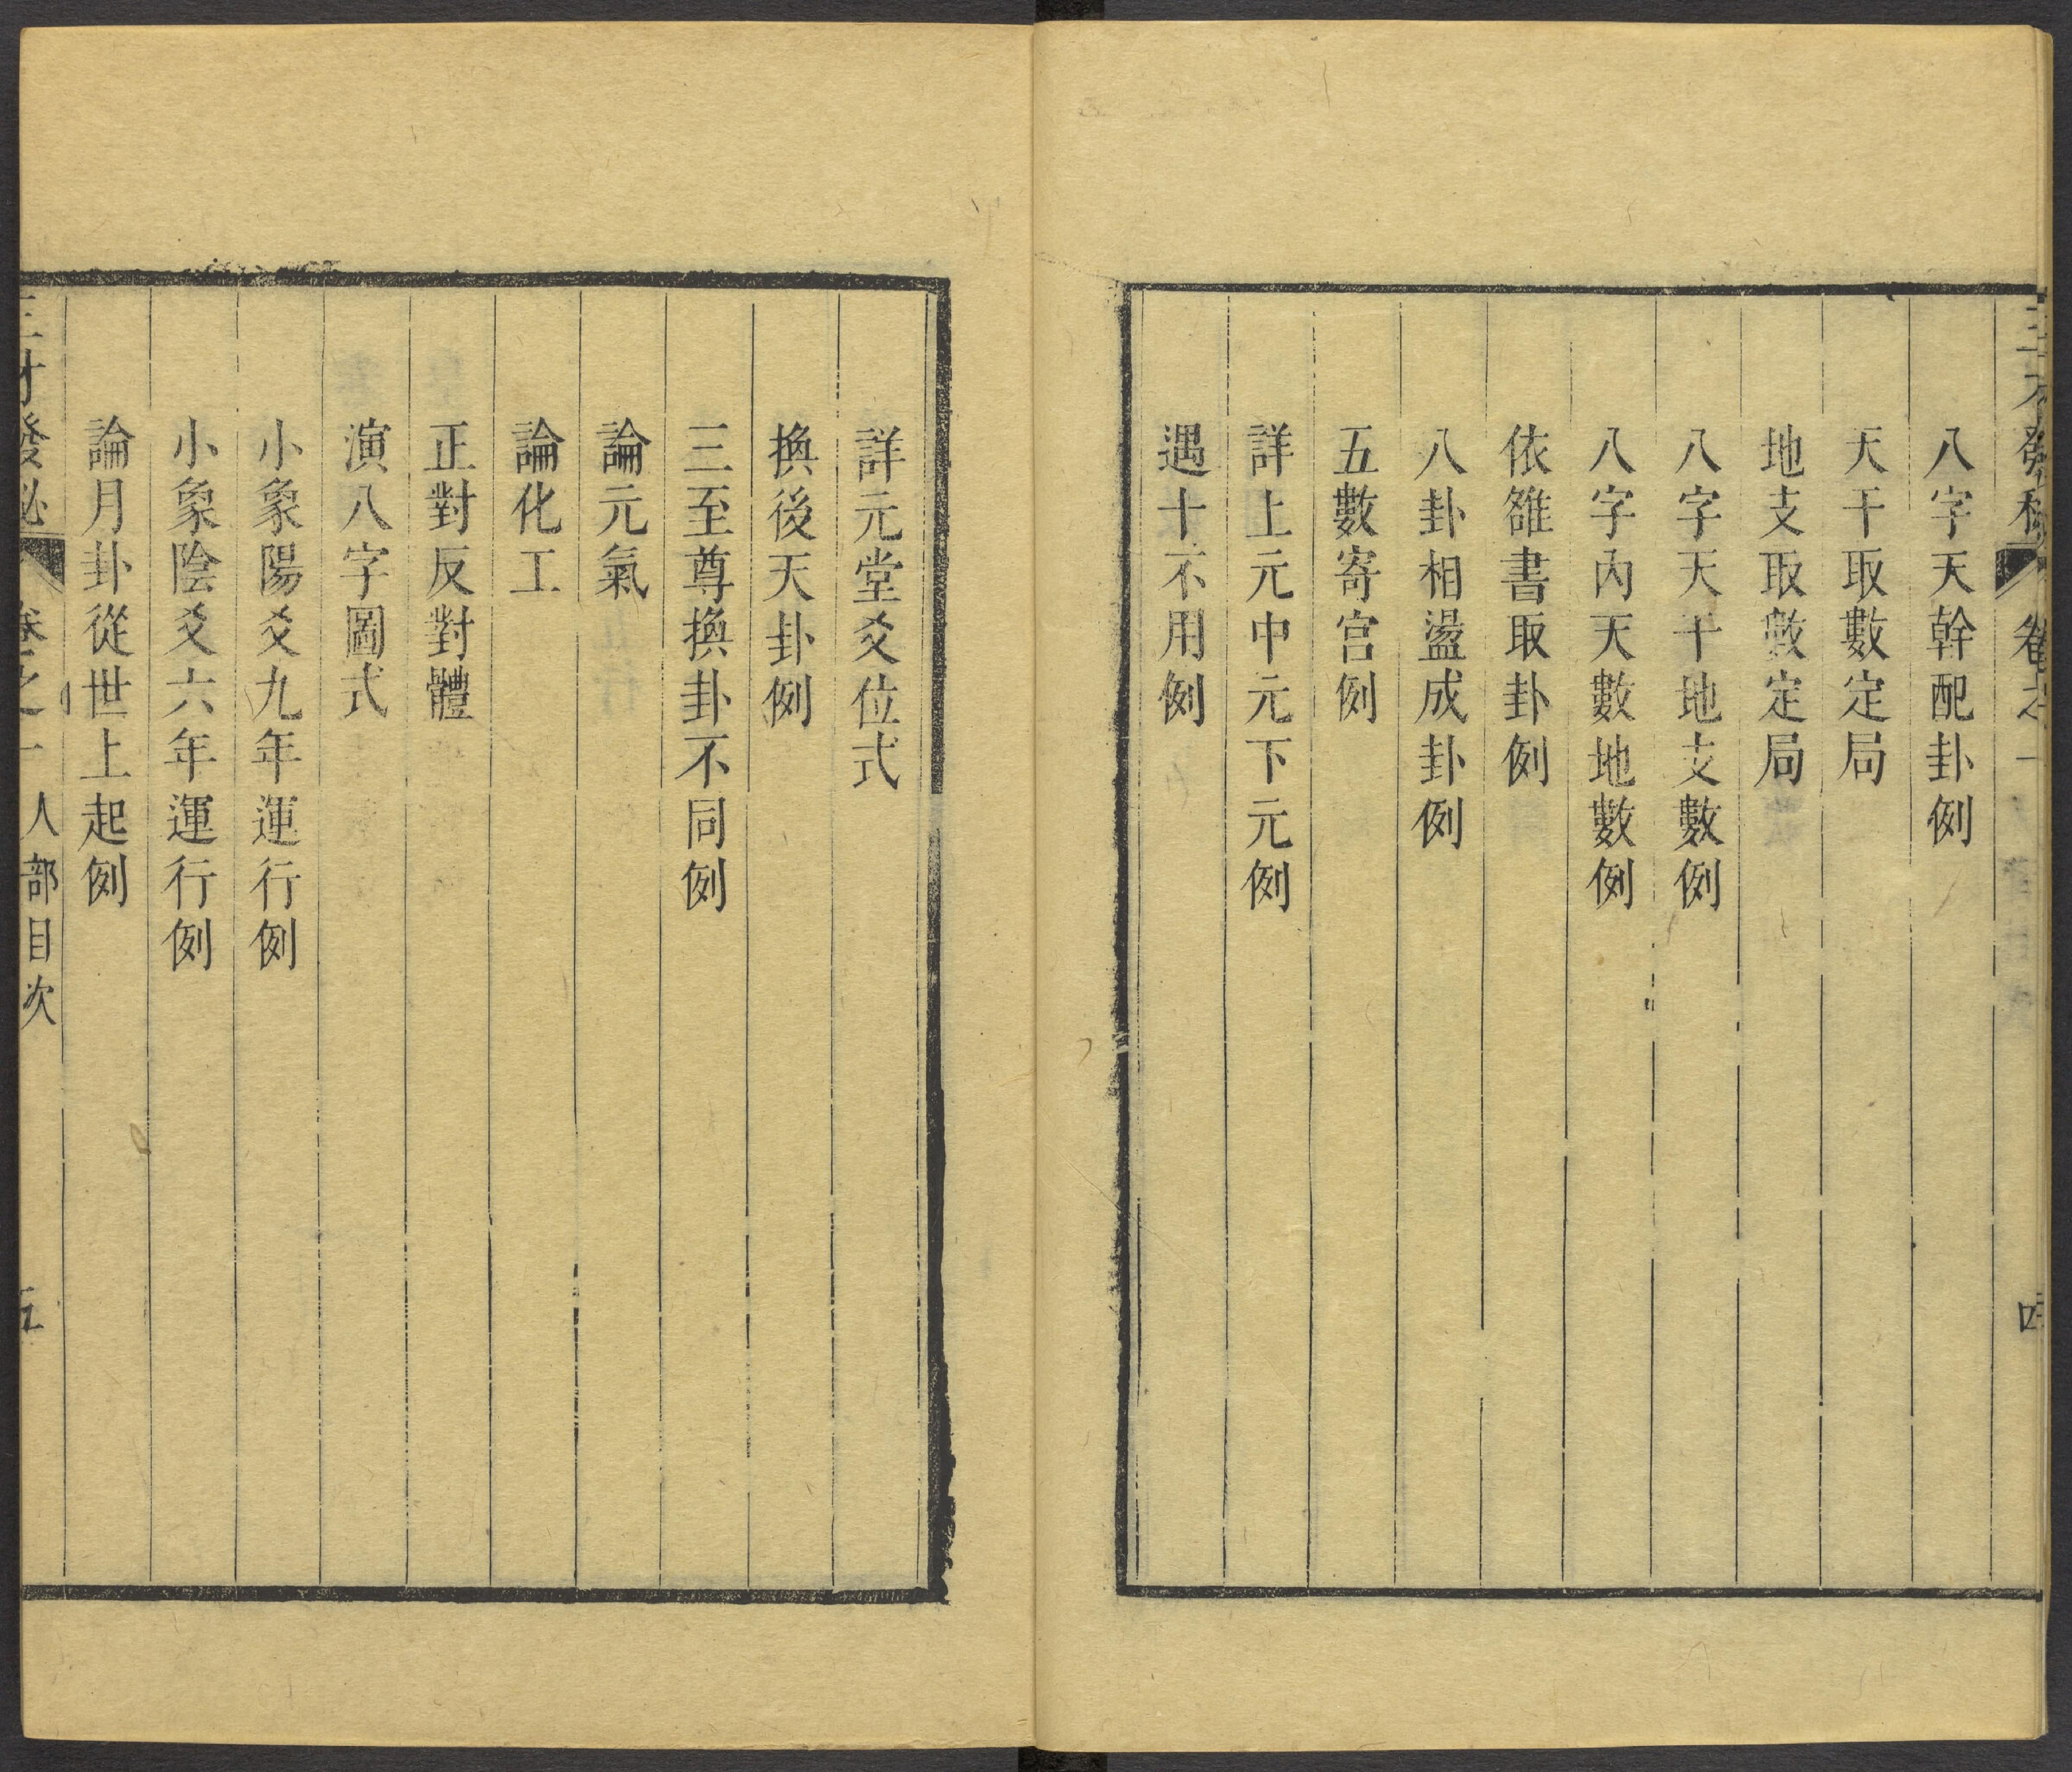 八字天幹配卦例
天干取數定局
地支取數定局
八字天干地支數例
八字內天數地數例
依雒書取卦例
八卦相盪成卦例
五數寄宮例
詳上元中元下元例
遇十不用例
詳元堂爻位式
換後天卦例
三至尊換卦不同例
論元氣
論化工
正對反對體
演八字圖式
小象陽爻九年運行例
小象陰爻六年運行例
論月卦從世上起例
三才發秘 卷之一 人部目次 五